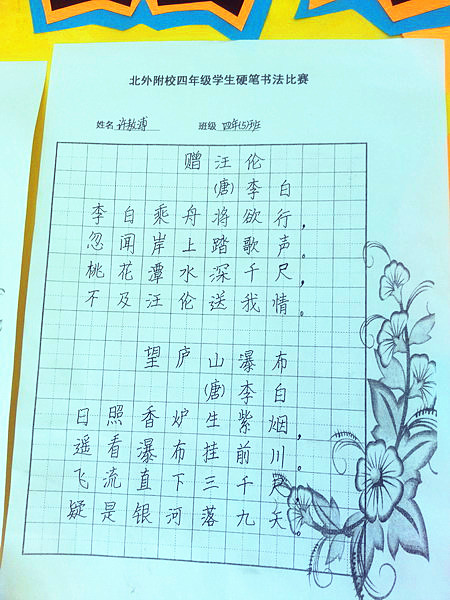 北外附校四年级学生硬笔书法比赛
姓名 许敖溥 班级 四年(5)班
赠汪伦
(唐)李白
李白乘舟将欲行,
忽闻岸上踏歌声。
桃花潭水深千尺,
不及汪伦送我情。
望庐山瀑布
(唐)李白
日照香炉生紫烟,
遥看瀑布挂前川。
飞流直下三千尺
疑是银河落九天。